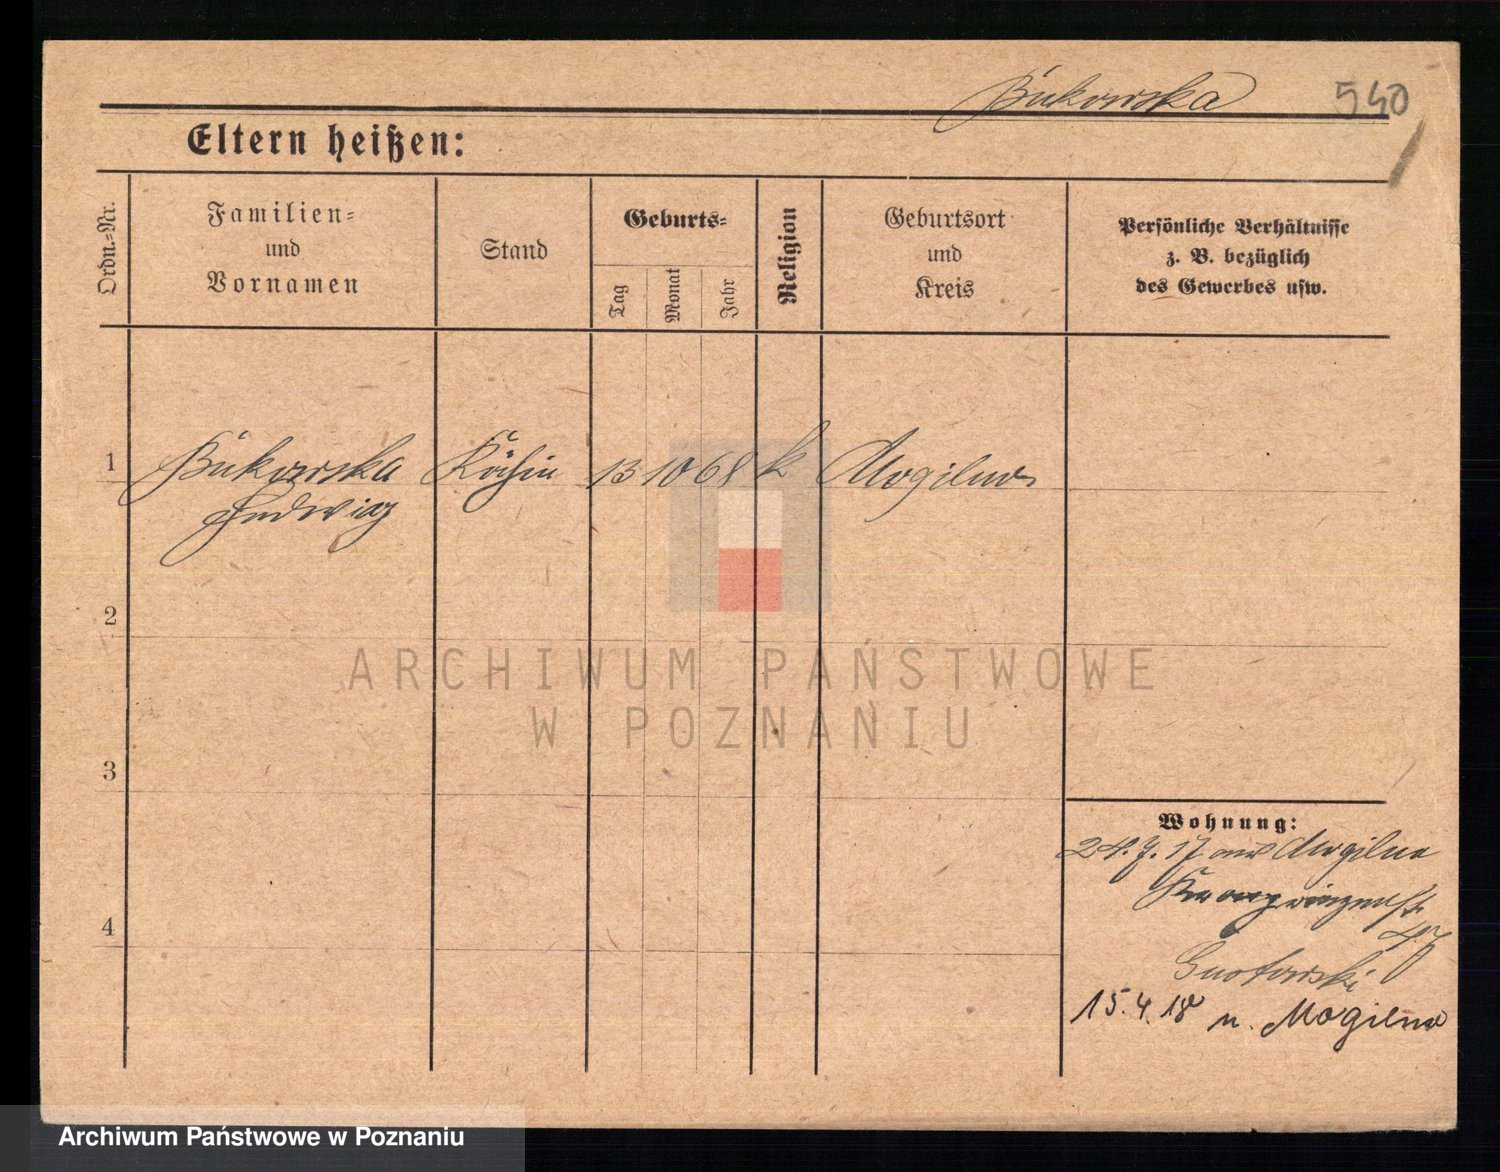 Bukowska 540
Eltern heißen:
Ordn.=Nr.
Familien=
und
Vornamen
Stand
Geburts=
Tag
Monat
Jahr
Religion
Geburtsort
und
Kreis
Persönliche Verhältnisse
z. B. bezüglich
des Gewerbes usw.
1 Bukowska Köchin 13 10 68 k Mogilno
Hedwig
2
3
4
Wohnung:
24.7.17 aus Mogilno
47
15.4.18 n. Mogilno
ARCHIWUM PAŃSTWOWE
W POZNANIU
Archiwum Państwowe w Poznaniu